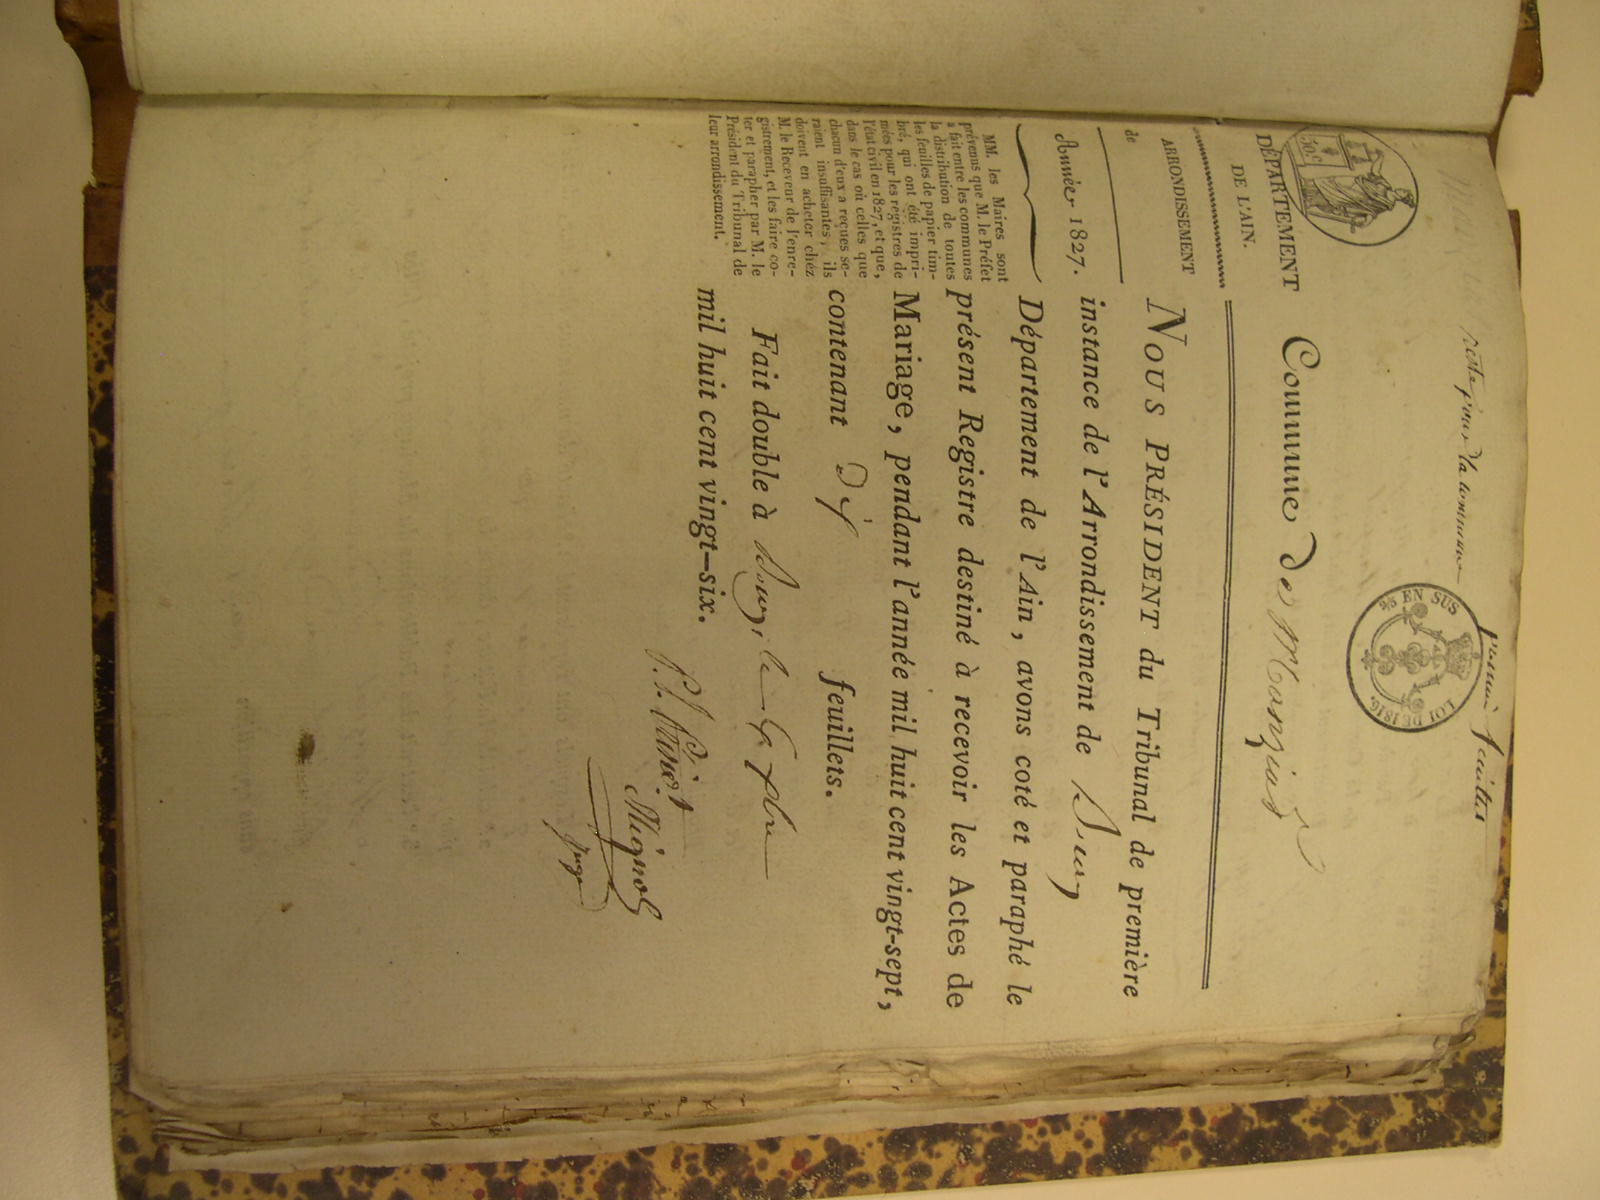 reste pour la commune
premier feuillet
2/5 EN SUS
LOI DE 1816.
30 c.
DÉPARTEMENT
DE L'AIN.
ARRONDISSEMENT
de
Année 1827.
MM. les Maires sont
prévenus que M. le Préfet
a fait entre les communes
la distribution de toutes
les feuilles de papier tim-
bré, qui ont été impri-
mées pour les registres de
l'état civil en 1827, et que,
dans le cas où celles que
chacun d'eux a reçues se-
raient insuffisantes, ils
doivent en acheter chez
M. le Receveur de l'enre-
gistrement, et les faire co-
ter et parapher par M. le
Président du Tribunal de
leur arrondissement.
Commune de Manziat
NOUS PRÉSIDENT du Tribunal de première
instance de l'Arrondissement de Bourg
Département de l'Ain, avons coté et paraphé le
présent Registre destiné à recevoir les Actes de
Mariage, pendant l'année mil huit cent vingt-sept,
contenant dix feuillets.
Fait double à Bourg, le
mil huit cent vingt-six.
juge